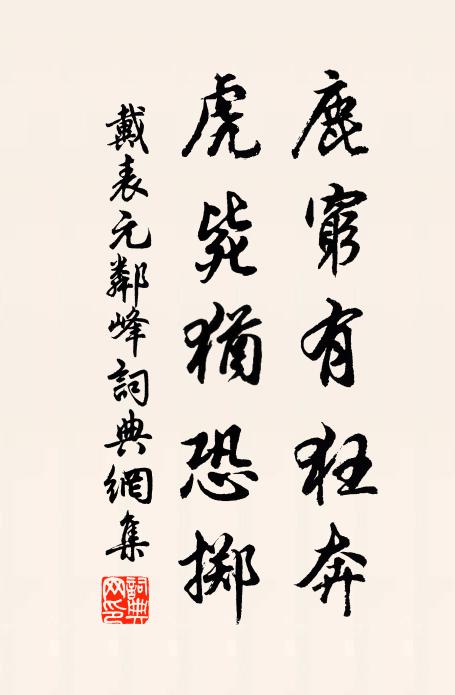 鹿窮有狂奔
虎斃猶恐擲
戴表元鄰峰詞典網集
詞典網印